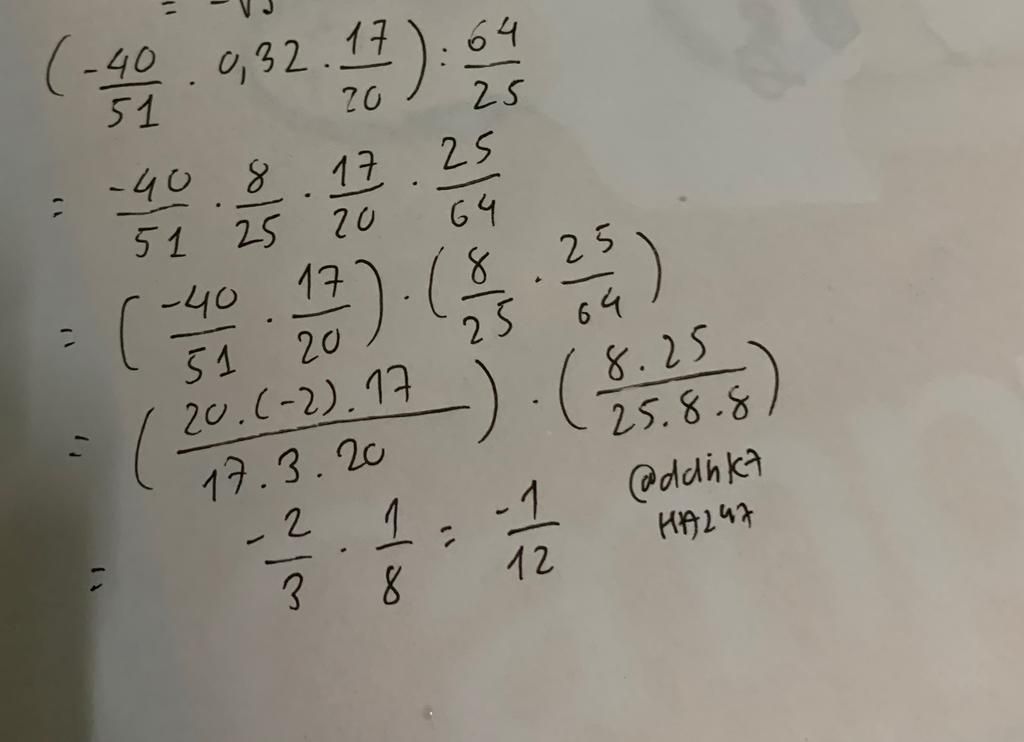 = -√3
(-40/51 . 0,32 . 17/20) : 64/25
= -40/51 . 8/25 . 17/20 . 25/64
= (-40/51 . 17/20) . (8/25 . 25/64)
= (20.(-2).17/17.3.20) . (8.25/25.8.8)
= -2/3 . 1/8 = -1/12
@ddhk7
HA247